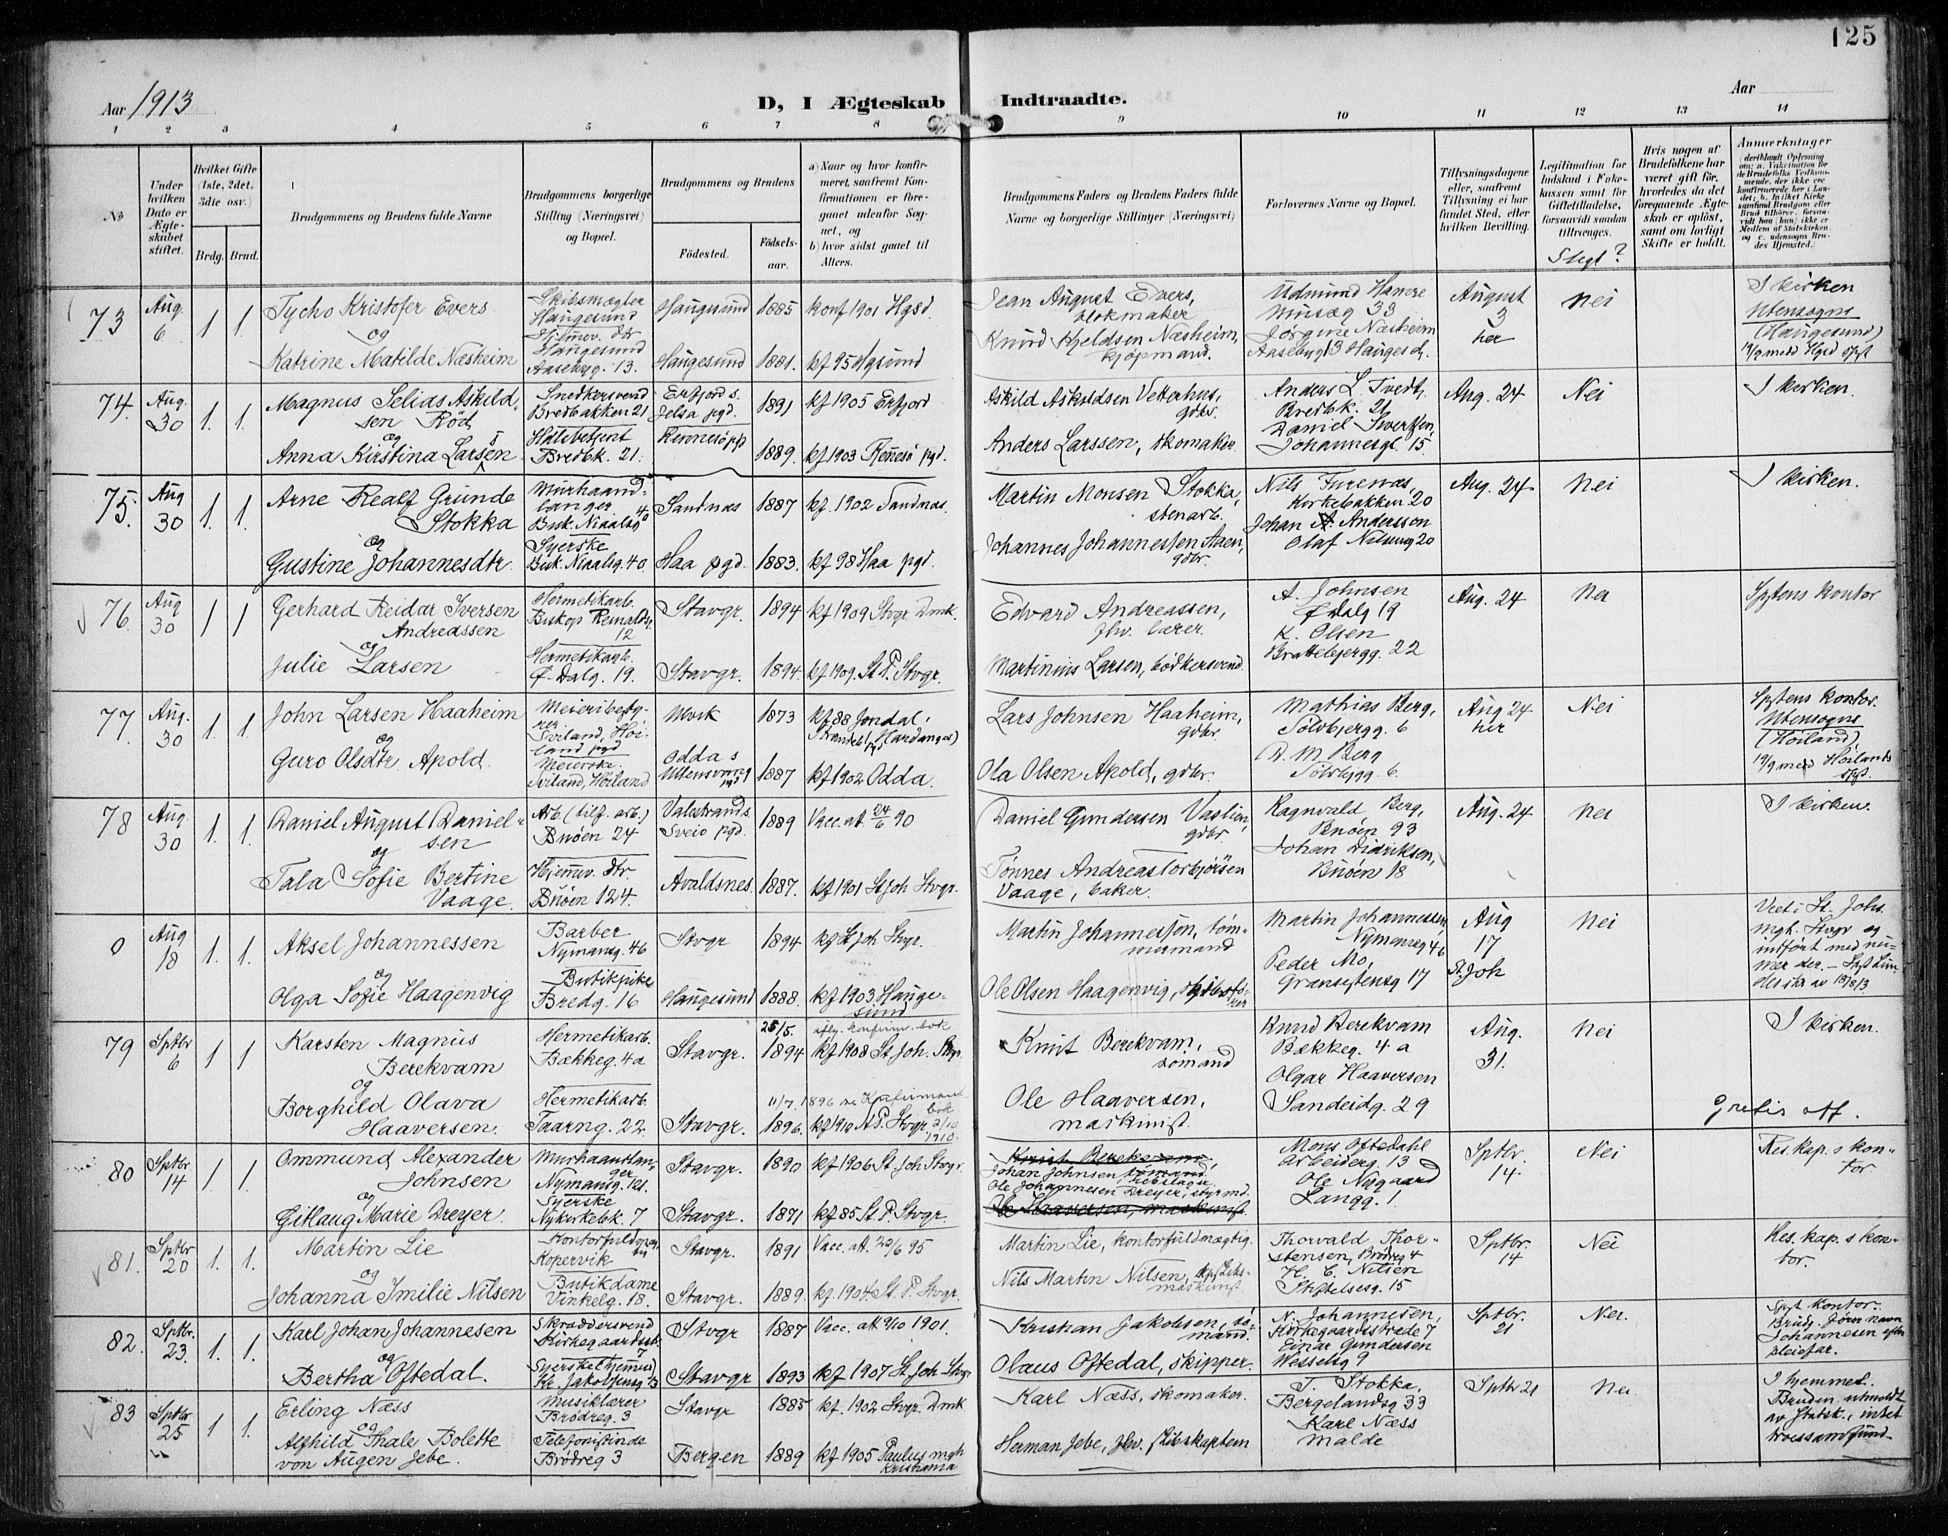 125
Aar 1913
D, I Ægteskab Indtraadte.
Aar
1 2 3 4 5 6 7 8 9 10 11 12 13 14
No
Under hvilken Dato er Ægteskabet stiftet.
Hvilket Gifte (1ste, 2det, 3die osv.)
Brdg. Brud.
Brudgommens og Brudens fulde Navne
Brudgommens borgerlige Stilling (Næringsvei) og Bopæl.
Brudgommens og Brudens
Födested.
Födselsaar.
a) Naar og hvor konfirmeret, saafremt Konfirmationen er foregaaet udenfor Sognet, og
b) hvor sidst gaaet til Alters.
Brudgommens Faders og Brudens Faders fulde Navne og borgerlige Stillinger (Næringsvei)
Forlovernes Navne og Bopæl.
Tillysningsdagene eller, saafremt Tillysning ei har fundet Sted, efter hvilken Bevilling.
Legitimation for Indskud i Enkekassen samt for Giftetilladelse, forsaavidt saadan tiltrænges.
Slegt?
Hvis nogen af Brudefolkene har været gift før, hvorledes da det foregaaende Ægteskab er oplöst, samt om lovligt Skifte er holdt.
Anmærkninger
73 Aug. 6 1 1 Tycho Kristofer Evers
og
Katrine Matilde Næsheim
Skibsmægler
Haugesund
Hjemmev. dtr
Haugesund
Aasebyg. 13.
Haugesund 1885 konf 1901 Hgsd.
Haugesund 1881. kf 95 Hgsund
Jean August Evers,
blokmaker
Knud Hjeldsen Næsheim,
kjøpmand.
Musæg 33
Jørgine Næsheim
Aasebyg 13 Haugesd.
August
3
her
Nei
I kirken
Utensogns
(Haugesund)
74 Aug. 30 1. 1. Magnus Selias Askildsen Rød
og
Anna Kirstina Larsen
Snedkersvend
Bredbakken 21
Bredbk. 21.
Erfjord s.
Jelsa pgd.
Rennesø pgd
1891 kf 1905 Erfjord
1889. kf 1903 Rennesø pgd.
Askild Askildsen Vetterhus,
gdbr.
Anders Larssen, skomaker
Anders L. Tvedt,
Bredbk. 21
Daniel Sivertsen,
Johannesgt. 15
Aug. 24 Nei
I kirken.
75. Aug 30 1. 1. Arne Realf Grunde
Stokka
og
Gustine Johannesdtr.
Murhaandlanger.
Syerske
Sandnæs 1887 kf. 1902 Sandnæs.
Haa pgd. 1883. kf 98 Haa pgd.
Martin Monsen Stokka,
stenarb.
Johannes Johannessen Aaen,
gdbr.
Nils Furenæs,
Kirkebakken 20
Johan A. Anderssen
Aug. 24 Nei
I kirken.
76. Aug 30 1 1 Gerhard Reidar Iversen
Andreassen
og
Julie Larsen
Hermetikarb.
12
Hermetikarb.
Ø. Dalg. 19.
Stavgr. 1894 kf 1909 Stvgr. Dmk.
Stavgr. 1894. kf 1909. St. P. Stvgr.
Edvard Andreassen,
fhv. lærer.
Martinius Larsen, bödkersvend.
A. Johnsen
Ø Dalg 19
K. Olsen
Brattebjergg. 22
Aug. 24 Nei
Spstens kontor
77 Aug. 30 1. 1. John Larsen Haaheim
og
Guro Olsdtr. Apold.
Meieribestyrer
Sviland, Høiland pgd
Meierske.
Sviland, Høiland
Odda s
1873 kf 88 Jondal,
1887 kf 1902 Odda.
Lars Johnsen Haaheim,
gdbr.
Ola Olsen Apold, gdbr.
Mathias Berg,
Sölvbjergg. 6
Aug 24
her
Nei
Spstens kontor.
Utensogns
(Høiland)
78 Aug. 30 1. 1. Daniel August Danielsen
og
Tala Sofie Bertine
Vaage.
Arb (tilf. arb.)
Buöen 24
Hjemmev. dtr
Buöen 124.
Valestrand s.
Sveio pgd.
Avaldsnes.
1889 Vacc. att. 24/6 90
1887. kf 1901 St Joh Stvgr.
Daniel Gundersen Vastlien,
gdbr.
Tønnes Andreas Torbjörnsen
Vaage, baker.
Ragnvald Berg,
Buöen 93
Johan Didriksen,
Buöen 18
Aug. 24 Nei
I kirken.
0 Aug 18 1. 1. Aksel Johannessen
og
Olga Sofie Haagenvig
Barber
Nymansg. 46
Butikpike
Bredg. 16
Stvgr 1894 kf St Joh Stvgr.
Haugesund 1888. kf 1903 Haugesund
Martin Johannessen, tømmermand
Ole Olsen Haagenvig,
Martin Johannessen,
Nymansg 46
Peder Mo,
Gransgtensg 17
Aug
17
St. Joh
Nei
79 Sptbr 6 1 1 Karsten Magnus
Berekvam
og
Borghild Olava
Haaversen.
Hermetikarb.
Bækkeg. 4a
Hermetikarb.
Taarng. 22.
Stavgr. 25/5. 1894 kf 1908 St. Joh. Stvgr.
Stavgr. 11/7. 1896. kf 1910 St P. Stvgr.
Knut Berekvam,
sömand
Ole Haaversen,
maskinist.
Knud Berekvam
Bækkeg. 4 a
Olgar Haaversen
Sandeidg. 29
Aug.
31.
Nei
I kirken.
Gratis att.
80 Sptbr. 14 1. 1. Ommund Alexander
Johnsen
og
Gitlaug Marie Dreyer.
Murhaandlanger
Syerske
Nykirkebk. 7
Stavgr. 1890 kf 1906 St. Joh Stvgr.
Stavgr. 1871 kf 85 St. P. Stvgr.
Knut Berekvam,
sömand,
Johan Johnsen,
Ole Johannesen Dreyer, styrmd.
Ole Haaversen, maskinist.
Mons Oftedahl
Arbeiderg. 13
Ole Nygaard
Langg. 1.
Sptbr.
14.
Nei
Res. kap. s kontor.
81. Sptbr 20 1. 1. Martin Lie
og
Johanna Emilie Nilsen
Kontorfuldmægtig
Kopervik
Butikdame
Vinkelg. 18.
Stavgr. 1891 Vacc. att. 20/6 95
Stavgr. 1889. kf. 1904 St. P. Stvgr.
Martin Lie, kontorfuldmægtig.
Nils Martin Nilsen,
maskinist
Thorvald Thorstensen, Brödreg 4
H. C. Nilsen
Stiftelsesg. 15
Sptbr.
14
Nei
Res. kap. s kontor.
82. Sptbr. 23. 1. 1. Karl Johan Johannesen
og
Bertha Oftedal.
Skræddersvend
Stvgr 1887 Vacc. att 9/10 1901.
Stavgr 1893 kf 1907 St. Joh Stvgr
Kristian Jakobsen, sömand.
Olaus Oftedal, skipper.
N. Johannesen,
Kirkegaardsstrade 7
Einar Gundersen
Wesselsg 9
Sptbr.
21
Nei.
Spst kontor.
Brudg. fører navn
Johannesen efter
pleiefar.
83 Sptbr. 25 1 1. Erling Næss
og
Alfhild Thale Bolette
von Augen Jebe.
Musiklærer
Brödreg. 3
Telefonistinde
Brödreg 3
Stavgr 1885 kf. 1902 Stvgr. Dmk
Bergen 1889 kf 1905 Paulus mgh
Kristiania
Karl Næss, skomaker.
Herman Jebe, fhv. skibskaptein
T. Stokka,
Bergelandsg 33
Karl Næss
Malde
Sptbr 21 Nei
I hjemmet.
Bruden utmeldt
av Statsk., intet
troessamfund